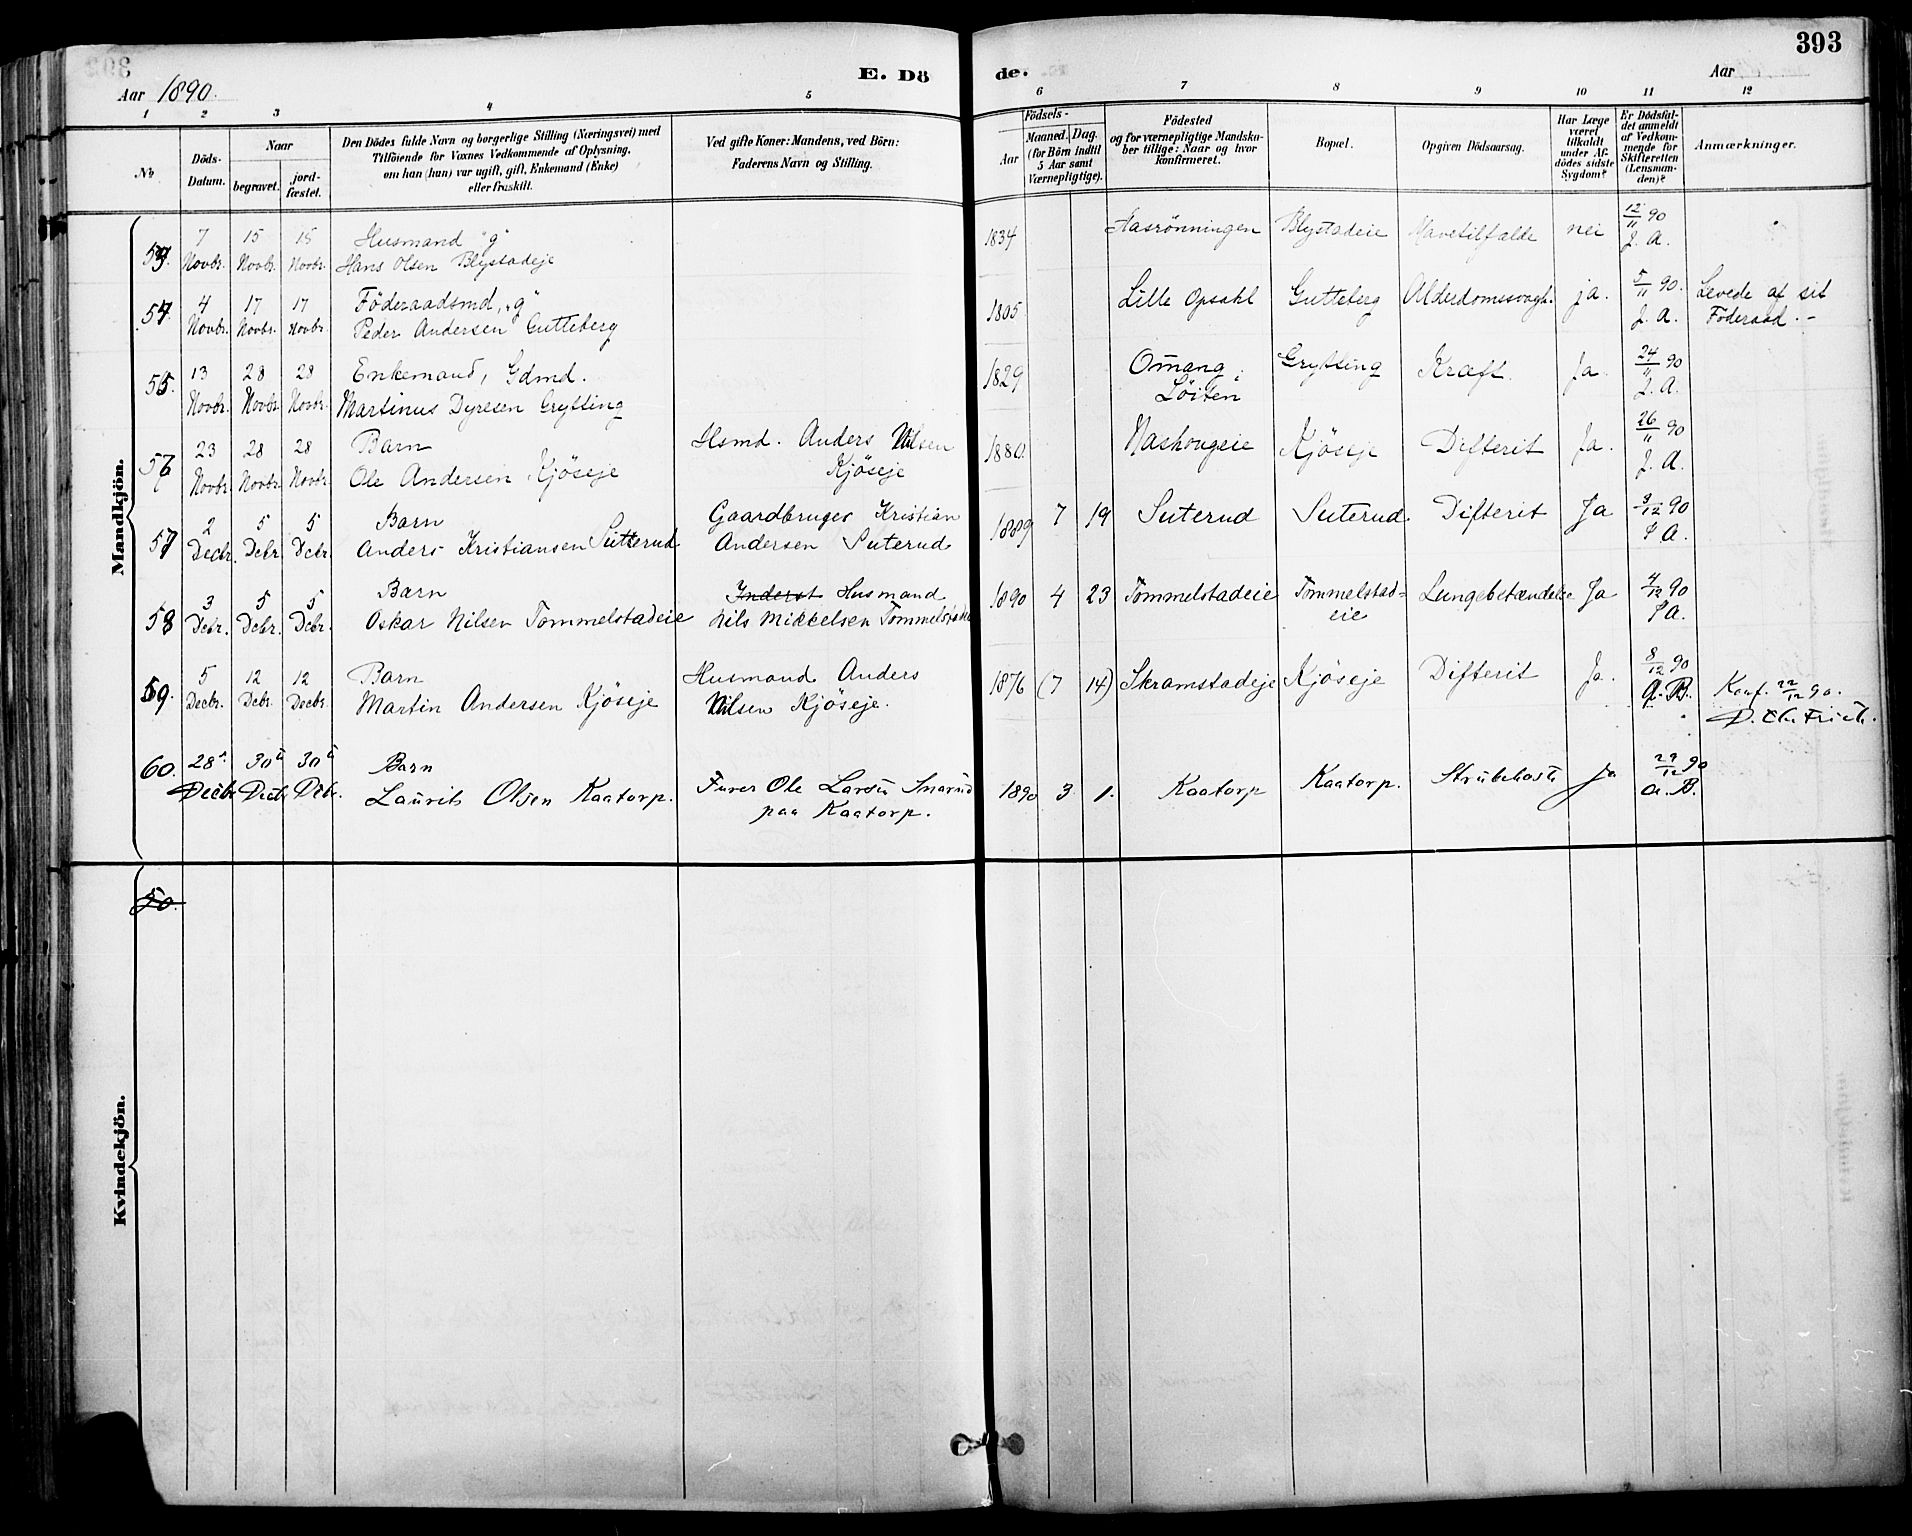 393
E. Dö
de.
Aar 1890.
Aar
1 2 3 4 5 6 7 8 9 10 11 12
No
Döds-
Datum.
Naar
begravet.
jord-
fæstet.
Den Dödes fulde Navn og borgerlige Stilling (Næringsvei) med
Tilföiende for Voxnes Vedkommende af Oplysning,
om han (hun) var ugift, gift, Enkemand (Enke)
eller fraskilt.
Ved gifte Koner: Mandens, ved Börn:
Faderens Navn og Stilling.
Födsels-
Aar
Maaned.
Dag.
(for Börn indtil
5 Aar samt
Værnepligtige).
Födested
og for værnepligtige Mandska-
ber tillige: Naar og hvor
konfirmeret.
Bopæl.
Opgiven Dödsaarsag.
Har Læge
været
tilkaldt
under Af-
dödes sidste
Sygdom?
Er Dödsfal-
det anmeldt
af Vedkom-
mende for
Skifteretten
(Lensman-
den)?
Anmærkninger.
Mandkjön.
53. 7 Novbr. 15 Novbr. 15 Novbr. Husmand "g"
Hans Olsen Blystadeje 1834 Aasrönningen Blystadeie Mavetilfælde nei 12/11 90 J. A.
54. 4 Novbr. 17 Novbr. 17 Novbr. Föderaadsmd, "g"
Peder Andersen Gutteberg 1805 Lille Opsahl Gutteberg Alderdomssvagh. ja. 5/11 90. J. A. Levede af sit
Föderaad. -
55. 13 Novbr. 28 Novbr. 28 Novbr. Enkemand, Gdmd.
Martinus Dyresen Grytting 1829 Omang i
Löiten Grytting Kræft. Ja. 24/11 90 J. A.
56 23 Novbr. 28 Novbr. 28 Novbr. Barn
Ole Andersen Kjöseje Hsmd. Anders Nilsen
Kjöseje 1880. Kjöseje Difterit Ja. 26/11 90 J. A.
57 2 Decbr. 5 Dcbr. 5 Dcbr. Barn
Anders Kristiansen Sutterud Gaardbruger Kristian
Andersen Suterud 1889 7 19 Suterud Suterud. Difterit Ja 3/12 90 J A.
58 3 Dcbr. 5 Dcbr. 5 Dcbr. Barn
Oskar Nilsen Tommelstadeie Inderst Husmand
Nils Mikkelsen Tommelstadeie 1890 4 23 Tommelstadeie Tommelstad=
eie Lungebetændelse Ja 4/12 90 J A.
59. 5 Decbr. 12 Decbr. 12 Decbr. Barn
Martin Andersen Kjöseje Husmand Anders
Nilsen Kjöseje. 1876 (7 14) Skramstadeje Kjöseje Difterit Ja. 8/12 90 A. B. Konf. 22/12 90.
60. 28 Decbr 30 Decbr 30 Dcbr. Barn
Laurits Olsen Kaatorp. Ole Larsen Snarud
paa Kaatorp. 1890 3 1. Kaatorp Kaatorp. Strubehoste ja 29/12 90 A. B.
Kvindekjön.
50.